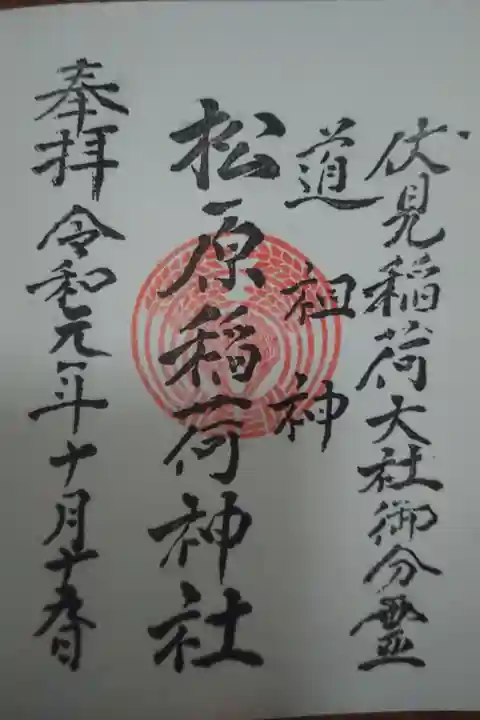 伏見稲荷大社御分霊
道祖神
松原稲荷神社
奉拝 令和元年十月十九日